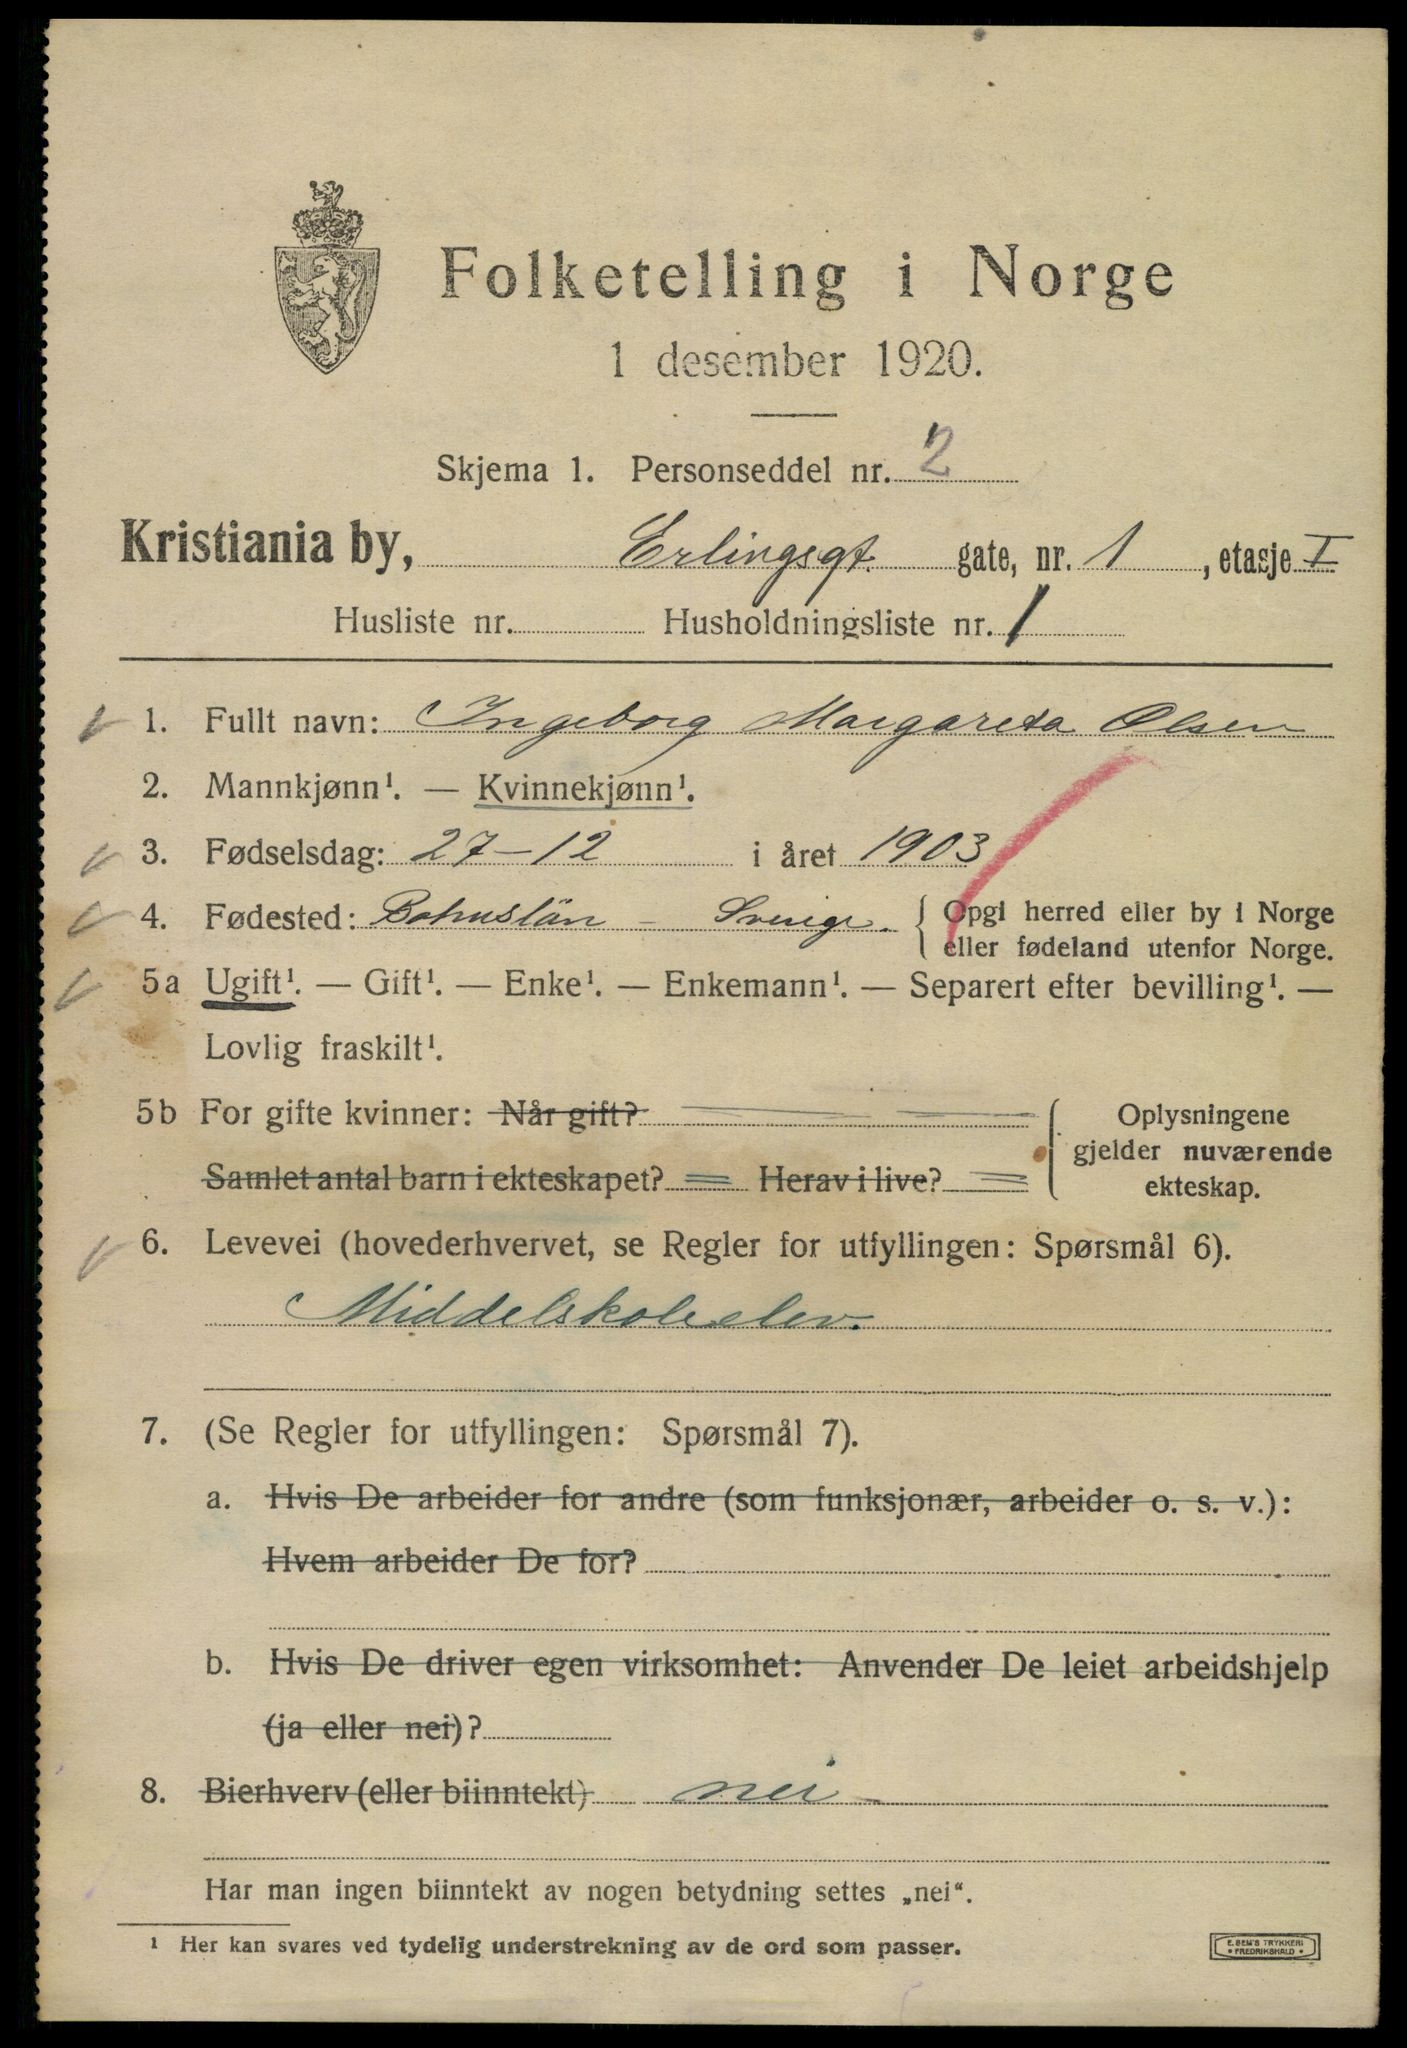 Folketelling i Norge
1 desember 1920.
Skjema 1. Personseddel nr. 2
Kristiania by, Erlingsgt. gate, nr. 1, etasje I
Husliste nr. Husholdningsliste nr. 1
1. Fullt navn: Ingeborg Margareta Olsen
2. Mannkjønn¹. — Kvinnekjønn¹.
3. Fødselsdag: 27-12 i året 1903
4. Fødested: Bohuslän - Sverige. { Opgi herred eller by i Norge
eller fødeland utenfor Norge.
5a Ugift¹. — Gift¹. — Enke¹. — Enkemann¹. — Separert efter bevilling¹. —
Lovlig fraskilt¹.
5b For gifte kvinner: Når gift?
Samlet antal barn i ekteskapet? Herav i live?
Oplysningene
gjelder nuværende
ekteskap.
6. Levevei (hovederhvervet, se Regler for utfyllingen: Spørsmål 6).
Middelskoleelev.
7. (Se Regler for utfyllingen: Spørsmål 7).
a. Hvis De arbeider for andre (som funksjonær, arbeider o. s. v.):
Hvem arbeider De for?
b. Hvis De driver egen virksomhet: Anvender De leiet arbeidshjelp
(ja eller nei)?
8. Bierhverv (eller biinntekt) nei
Har man ingen biinntekt av nogen betydning settes „nei“.
¹ Her kan svares ved tydelig understrekning av de ord som passer.
E. SEM'S TRYKKERI
• FREDRIKSHALD •